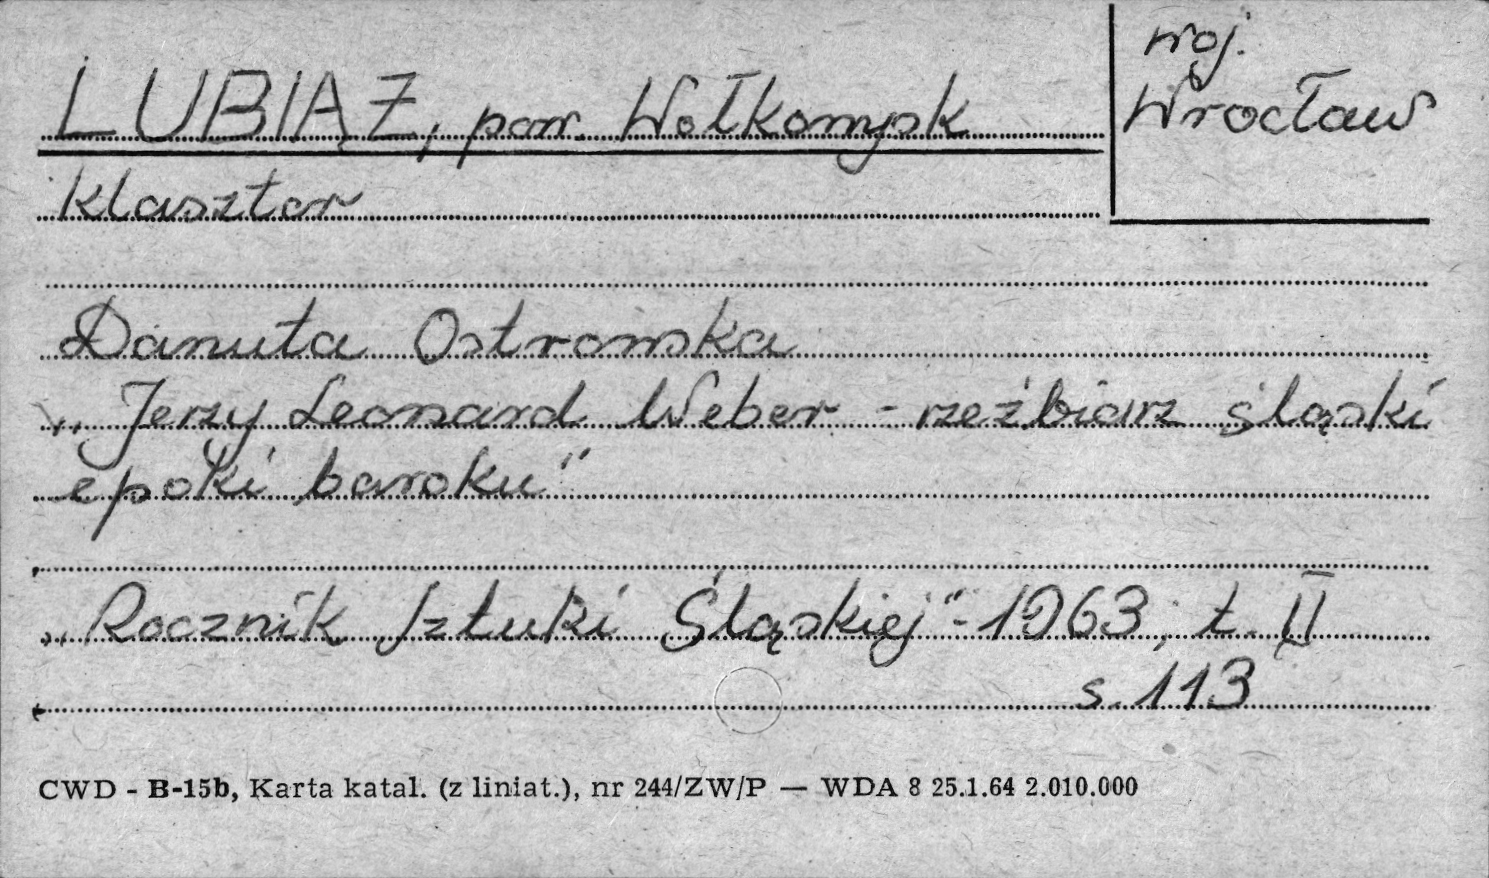 LUBIĄŻ, pow. Wołkomysk
woj.
Wrocław
klasztor
Danuta Ostrowska
„Jerzy Leonard Weber - rzeźbiarz śląski
epoki baroku"
„Rocznik Sztuki Śląskiej" - 1963, t. II
s. 113
CWD - B-15b, Karta katal. (z liniat.), nr 244/ZW/P — WDA 8 25.1.64 2.010.000